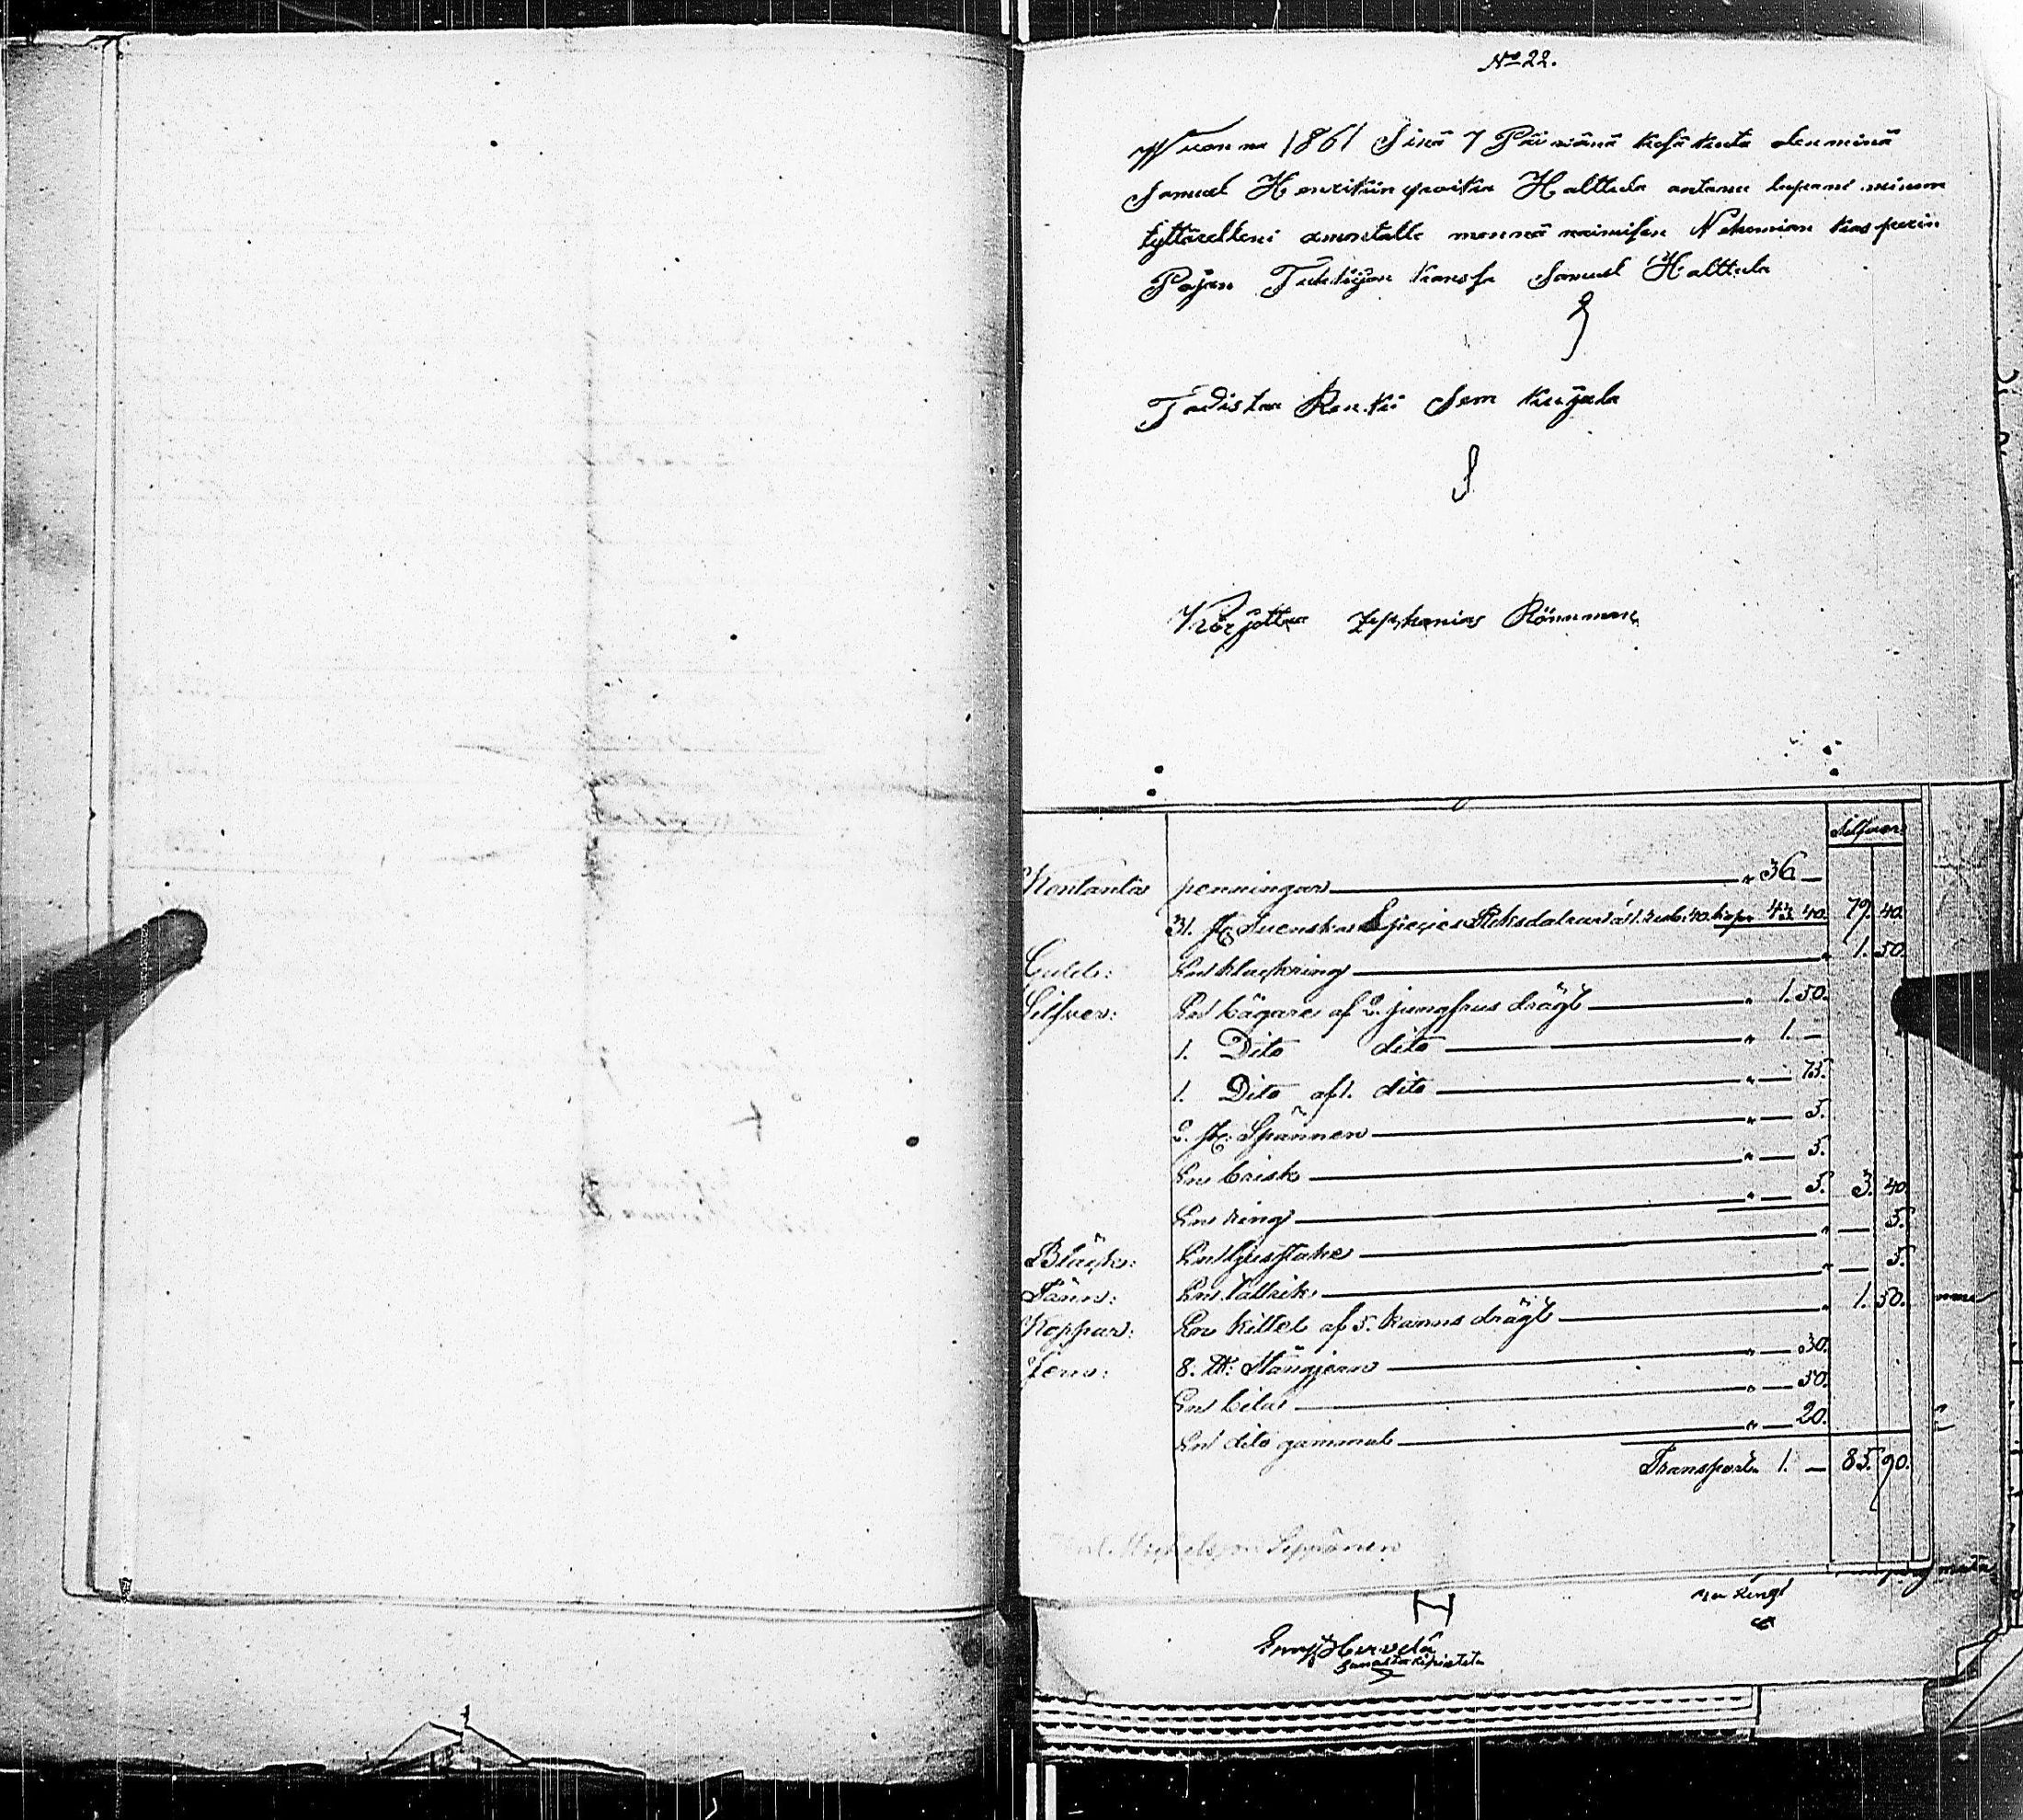 No 22.
Wuonna 1861 Sinä 7 Päiwänä kesäkuuta olen minä
Samuel Henrikin poika Halttula antanu lupani minun
tyttärelleni amortalle mennä naimisen Nehemian kasperin
Pojan Tuhkijan kanssa Samuel Halttula
Todistaa Renki Sem kujala
Kirjottaa Zephanias Rönnman
Silfver.
Kontanta penningar " 36 —
31. st. Svenska Species Riksdalrar á 1. rub. 40. kop. 43. 40. 79. 40.
Guld: En klackring " 1. 50.
Silfver: En bägare af 2. jungfrus drägt " 1. 50.
1. Dito dito " 1. —
1. Dito af 1. dito " — 75.
2. st. Spännen " — 5.
En brisk " — 5.
En ring " — 5. 3. 40.
Bläck: En ljusstake " — 5.
Tänn: En tallrik " — 5.
Koppar: En kittel af 5. kanns drägt " 1. 50.
Jern: 8. ℔: Stångjern " — 30.
En bila " — 50.
En dito gammal " — 20.
Transport " 1. — 85. 90.
Michelsson Seppänen
H
Hervelä